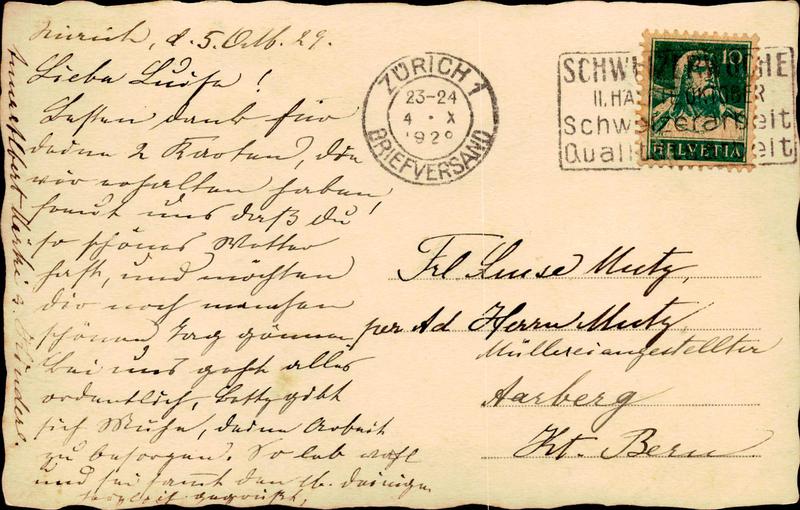 Zürich, d. 5. Oktb. 29.
Liebe Luise!
Besten dank für
deine 2 Karten, die
wir erhalten haben
freut uns daß du
so schönes Wetter
hast, und möchten
dir noch manchen
schönen Tag gönnen,
bei uns geht alles
ordentlich, Betty gibt
sich Mühe, deine Arbeit
zu besorgen. So leb wohl
und sei samt den lb. deinigen
herzlich gegrüßt,
ZÜRICH 1
23-24
4 · X
1929
BRIEFVERSAND
SCHWEIZERWOCHE
II. HÄLFTE OKTOBER
Schweizerarbeit
Qualitätsarbeit
10
HELVETIA
Frl. Luise Mutz,
per Ad Herrn Mutz,
Müllereiangestellter
Aarberg
Kt. Bern.